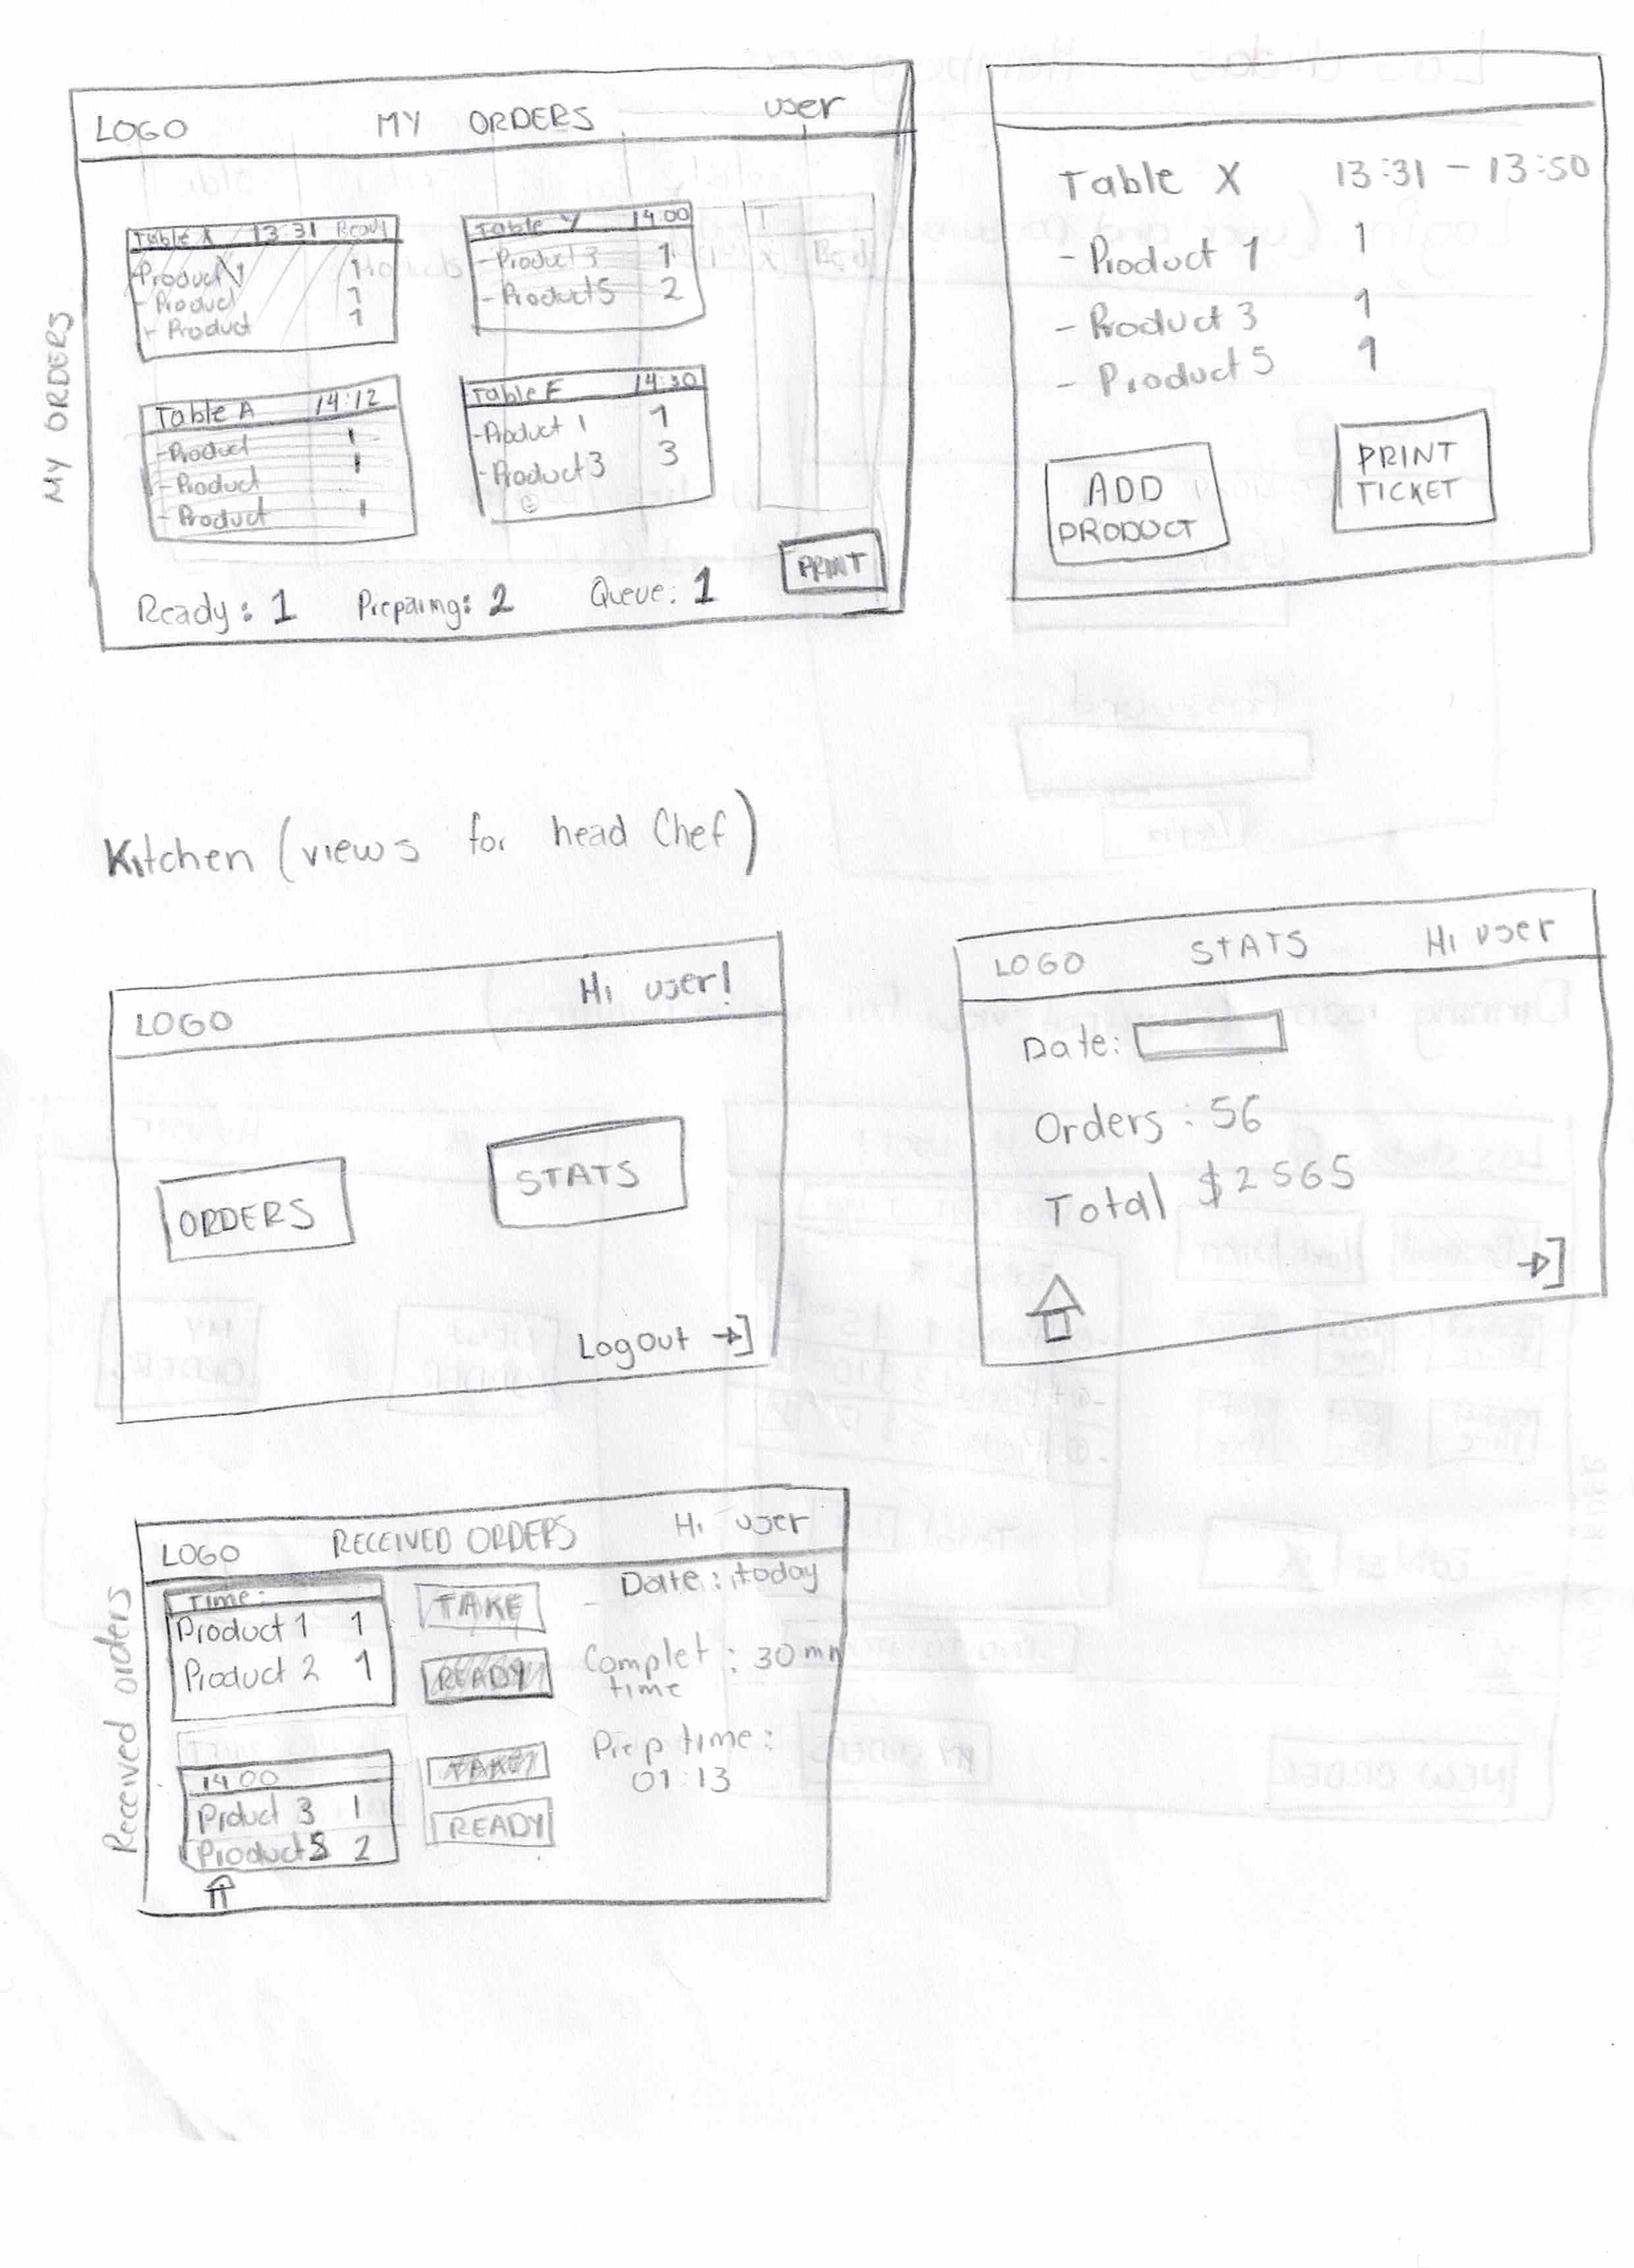 LOGO MY ORDERS user
MY ORDERS
Table X 13:31 Ready
-Product 1 1
- Product 1
- Product 1
Table Y 14:00
- Product 3 1
- Product 5 2
Table A 14:12
-Product 1
-Product 1
-Product 1
Table F 14:30
-Product 1 1
-Product 3 3
Ready: 1 Preparing: 2 Queue: 1
PRINT
Table X 13:31 - 13:50
- Product 1 1
- Product 3 1
- Product 5 1
ADD
PRODUCT
PRINT
TICKET
Kitchen (views for head Chef)
LOGO Hi user!
ORDERS
STATS
Logout
LOGO STATS Hi user
Date:
Orders: 56
Total $2565
Received orders
LOGO RECEIVED ORDERS Hi user
Time:
Product 1 1
Product 2 1
TAKE
READY
Date: today
Complet : 30 mn
time
Prep time:
01:13
14:00
Prduct 3 1
Product 5 2
TAKE
READY